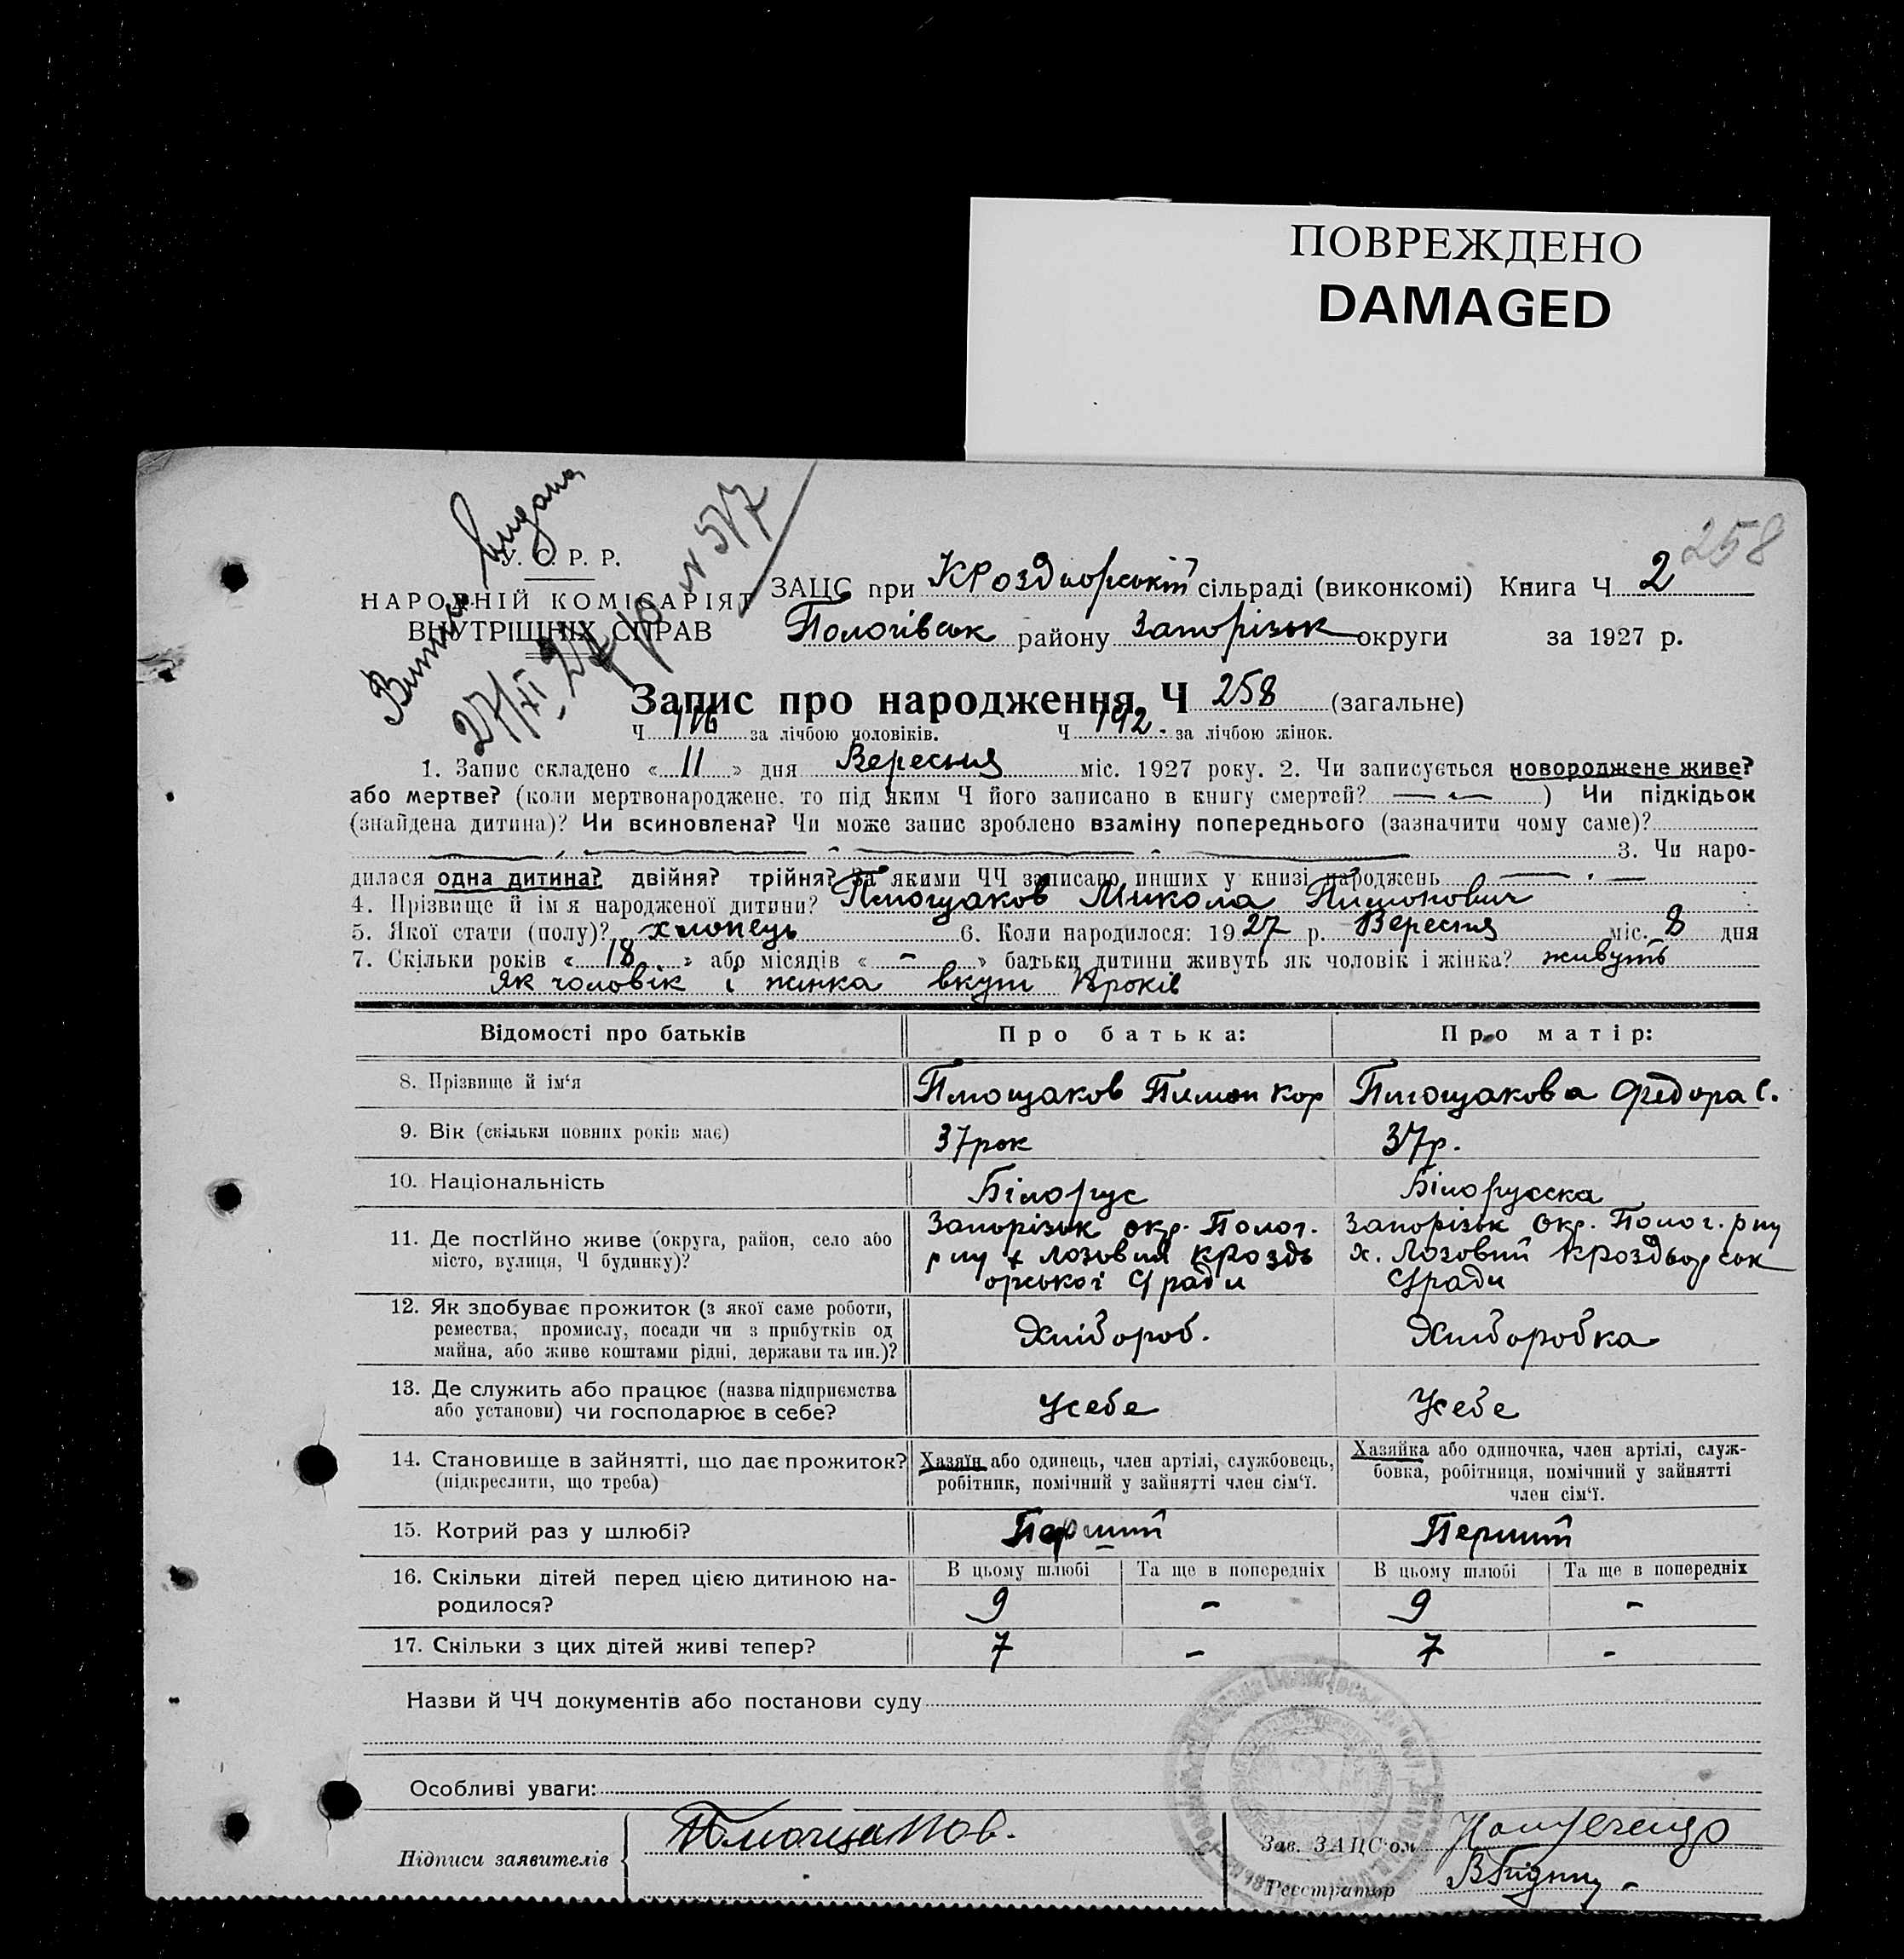 ПОВРЕЖДЕНО
DAMAGED
258
Витяг видано
27/XI 27 р № 517
У. С. Р. Р.
НАРОДНІЙ КОМІСАРІЯТ
ВНУТРІШНІХ СПРАВ
ЗАЦС при КРоздорській сільраді (виконкомі) Книга Ч 2
Пологівськ району Запорізьк округи за 1927 р.
Запис про народження Ч 258 (загальне)
Ч 116 за лічбою чоловіків. Ч 142 за лічбою жінок.
1. Запис складено « 11 » дня Вересня міс. 1927 року. 2. Чи записується новороджене живе?
або мертве? (коли мертвонароджене, то під яким Ч його записано в книгу смертей? — ) Чи підкідьок
(знайдена дитина)? Чи всиновлена? Чи може запис зроблено взаміну попереднього (зазначити чому саме)?
3. Чи наро-
дилася одна дитина? двійня? трійня? За якими ЧЧ записано инших у книзі народжень — . —
4. Прізвище й імя народженої дитини? Плющаков Микола Пимонович
5. Якої стати (полу)? хлопець 6. Коли народилося: 1927 р. Вересня міс. 8 дня
7. Скільки років « 18 » або місяців « - » батьки дитини живуть як чоловік і жінка? живуть
як чоловік і жінка вкупі 18 років
Відомості про батьків Про батька: Про матір:
8. Прізвище й ім‘я Плющаков Пимон Кор Плющакова Федора С.
9. Вік (скільки повних років має) 37 рок 37 р.
10. Національність Білорус Білоруска
11. Де постійно живе (округа, район, село або
місто, вулиця, Ч будинку)?
Запорізьк окр. Полог.
р ну х Лозовий КРоздь
орської С/ради
Запорізьк окр. Полог. р ну
х. Лозовий КРоздьорськ
С/ради
12. Як здобуває прожиток (з якої саме роботи,
ремества, промислу, посади чи з прибутків од
майна, або живе коштами рідні, держави та ин.)?
Хлібороб. Хліборобка
13. Де служить або працює (назва підприємства
або установи) чи господарює в себе?
У себе У себе
14. Становище в зайнятті, що дає прожиток?
(підкреслити, що треба)
Хазяїн або одинець, член артілі, службовець,
робітник, помічний у зайнятті член сім‘ї.
Хазяйка або одиночка, член артілі, служ-
бовка, робітниця, помічний у зайнятті
член сім‘ї.
15. Котрий раз у шлюбі? Перший Перший
16. Скільки дітей перед цією дитиною на-
родилося?
В цьому шлюбі Та ще в попередніх В цьому шлюбі Та ще в попередніх
9 - 9 -
17. Скільки з цих дітей живі тепер? 7 - 7 -
Назви й ЧЧ документів або постанови суду
Особливі уваги:
Підписи заявителів Плющаков.
Зав. ЗАЦС‘ом
Реєстратор